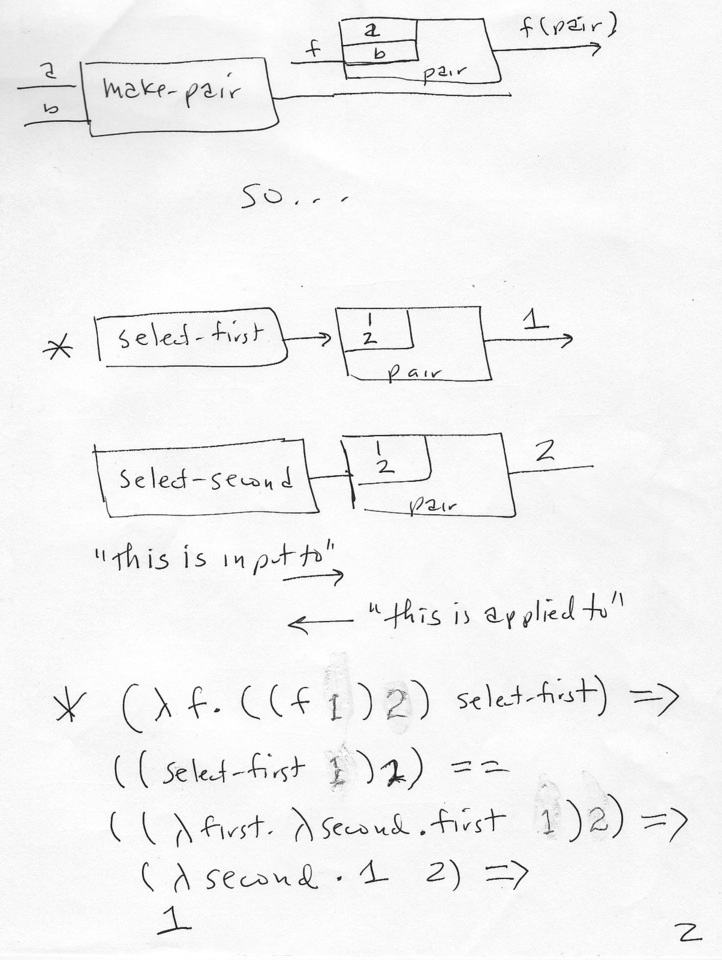 a
b
make-pair
f
a
b
pair
f(pair)
so...
* select-first
1
2
pair
1
select-second
1
2
pair
2
"this is input to"
→
← "this is applied to"
* (λ f. ((f 1) 2) select-first) =>
((select-first 1) 2) ==
((λ first. λ second. first 1) 2) =>
(λ second. 1 2) =>
1
2